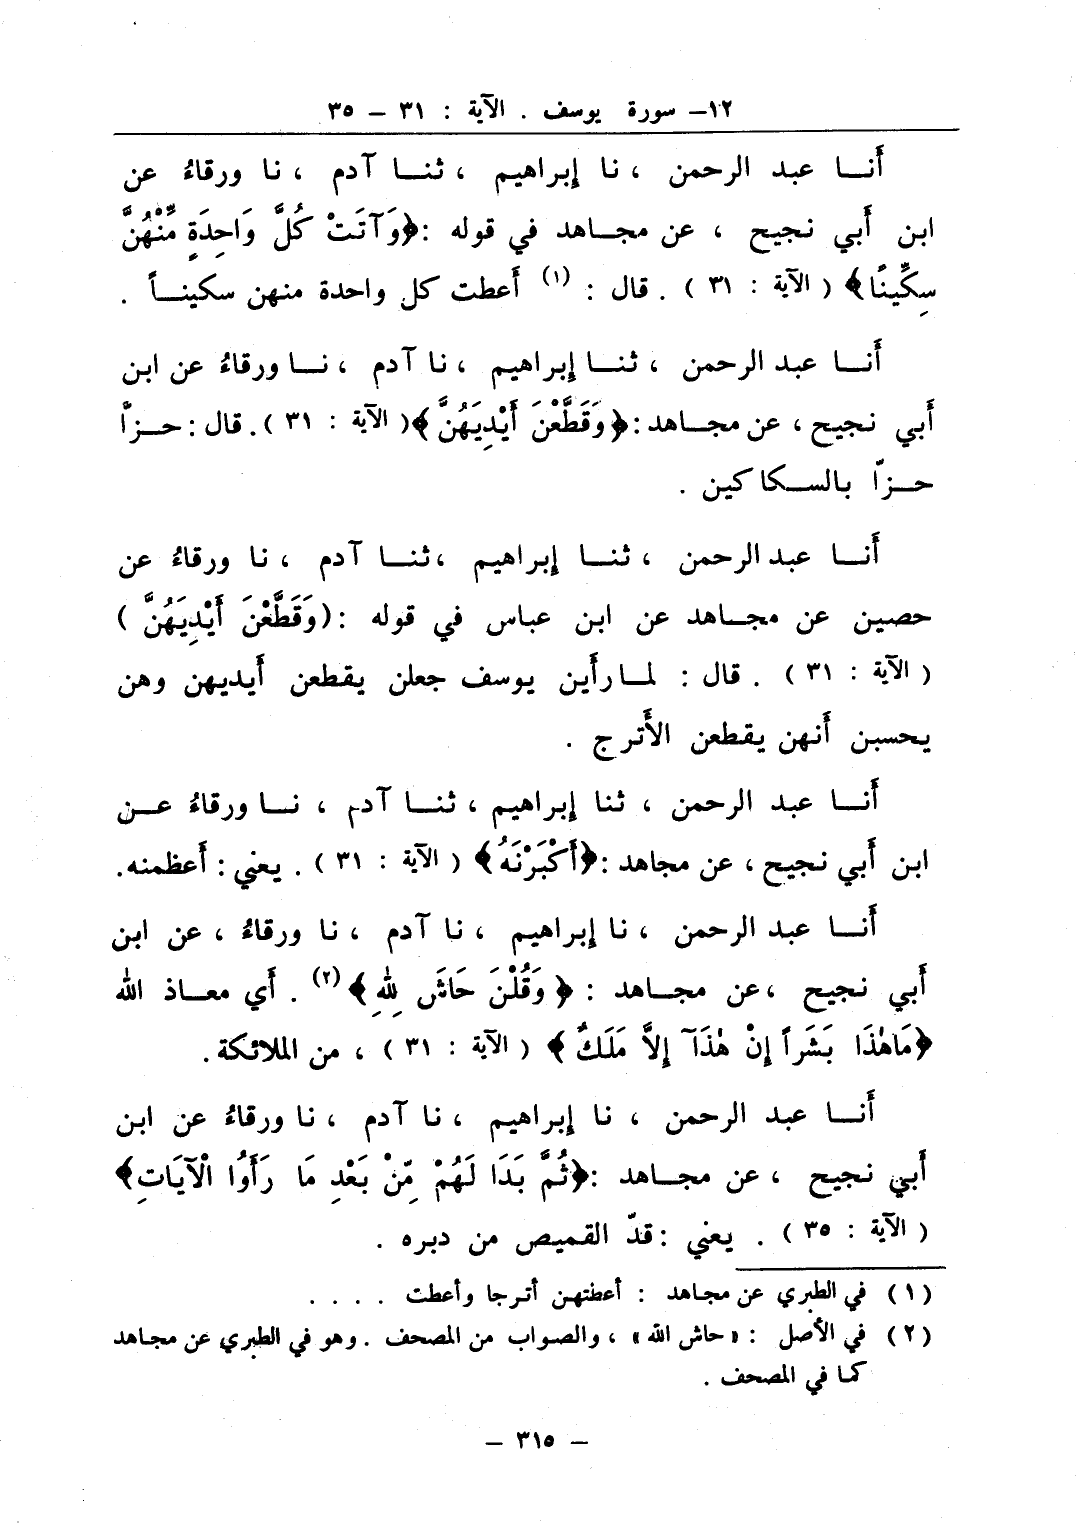 ١٢– سورة يوسف . الآية : ٣١ – ٣٥
أَنـا عبد الرحمن ، نا إبراهيم ، ثنـا آدم ، نا ورقاءُ عن
ابن أَبي نجيح ، عن مجـاهد في قوله :﴿وَآتَتْ كُلَّ وَاحِدَةٍ مِّنْهُنَّ
سِكِّينًا﴾ ( الآية : ٣١ ) . قال : (١) أَعطت كل واحدة منهن سكينـاً .
أَنـا عبد الرحمن ، ثنـا إبراهيم ، نا آدم ، نـا ورقاءُ عن ابن
أَبي نجيح ، عن مجـاهد :﴿وَقَطَّعْنَ أَيْدِيَهُنَّ﴾( الآية : ٣١ ). قال : حـزاًّ
حـزاّ بالسـكاكين .
أَنـا عبد الرحمن ، ثنـا إبراهيم ، ثنـا آدم ، نا ورقاءُ عن
حصين عن مجـاهد عن ابن عباس في قوله :(وَقَطَّعْنَ أَيْدِيَهُنَّ )
( الآية : ٣١ ) . قال : لمـا رأَين يوسف جعلن يقطعن أَيديهن وهن
يحسبن أَنهن يقطعن الأَترج .
أَنـا عبد الرحمن ، ثنا إبراهيم ، ثنـا آدم ، نـا ورقاءُ عـن
ابن أَبي نجيح ، عن مجاهد :﴿أَكْبَرْنَهُ﴾ ( الآية : ٣١ ) . يعني : أَعظمنه.
أَنـا عبد الرحمن ، نا إبراهيم ، نا آدم ، نا ورقاءُ ، عن ابن
أَبي نجيح ، عن مجـاهد : ﴿ وَقُلْنَ حَاشَ لِلهِ ﴾(٢) . أَي معـاذ الله
﴿مَاهٰذَا بَشَراً إِنْ هٰذَآ إِلاَّ مَلَكٌ ﴾ ( الآية : ٣١ ) ، من الملائكة .
أَنـا عبد الرحمن ، نا إبراهيم ، نا آدم ، نا ورقاءُ عن ابن
أَبي نجيح ، عن مجـاهد :﴿ثُمَّ بَدَا لَهُمْ مِّنْ بَعْدِ مَا رَأَوُا الْآيَاتِ﴾
( الآية : ٣٥ ) . يعني : قدّ القميص من دبره .
(١) في الطبري عن مجاهد : أعطتهن أترجا وأعطت . . . .
(٢) في الأصل : «حاش الله» ، والصواب من المصحف . وهو في الطبري عن مجاهد
كما في المصحف .
– ٣١٥ –